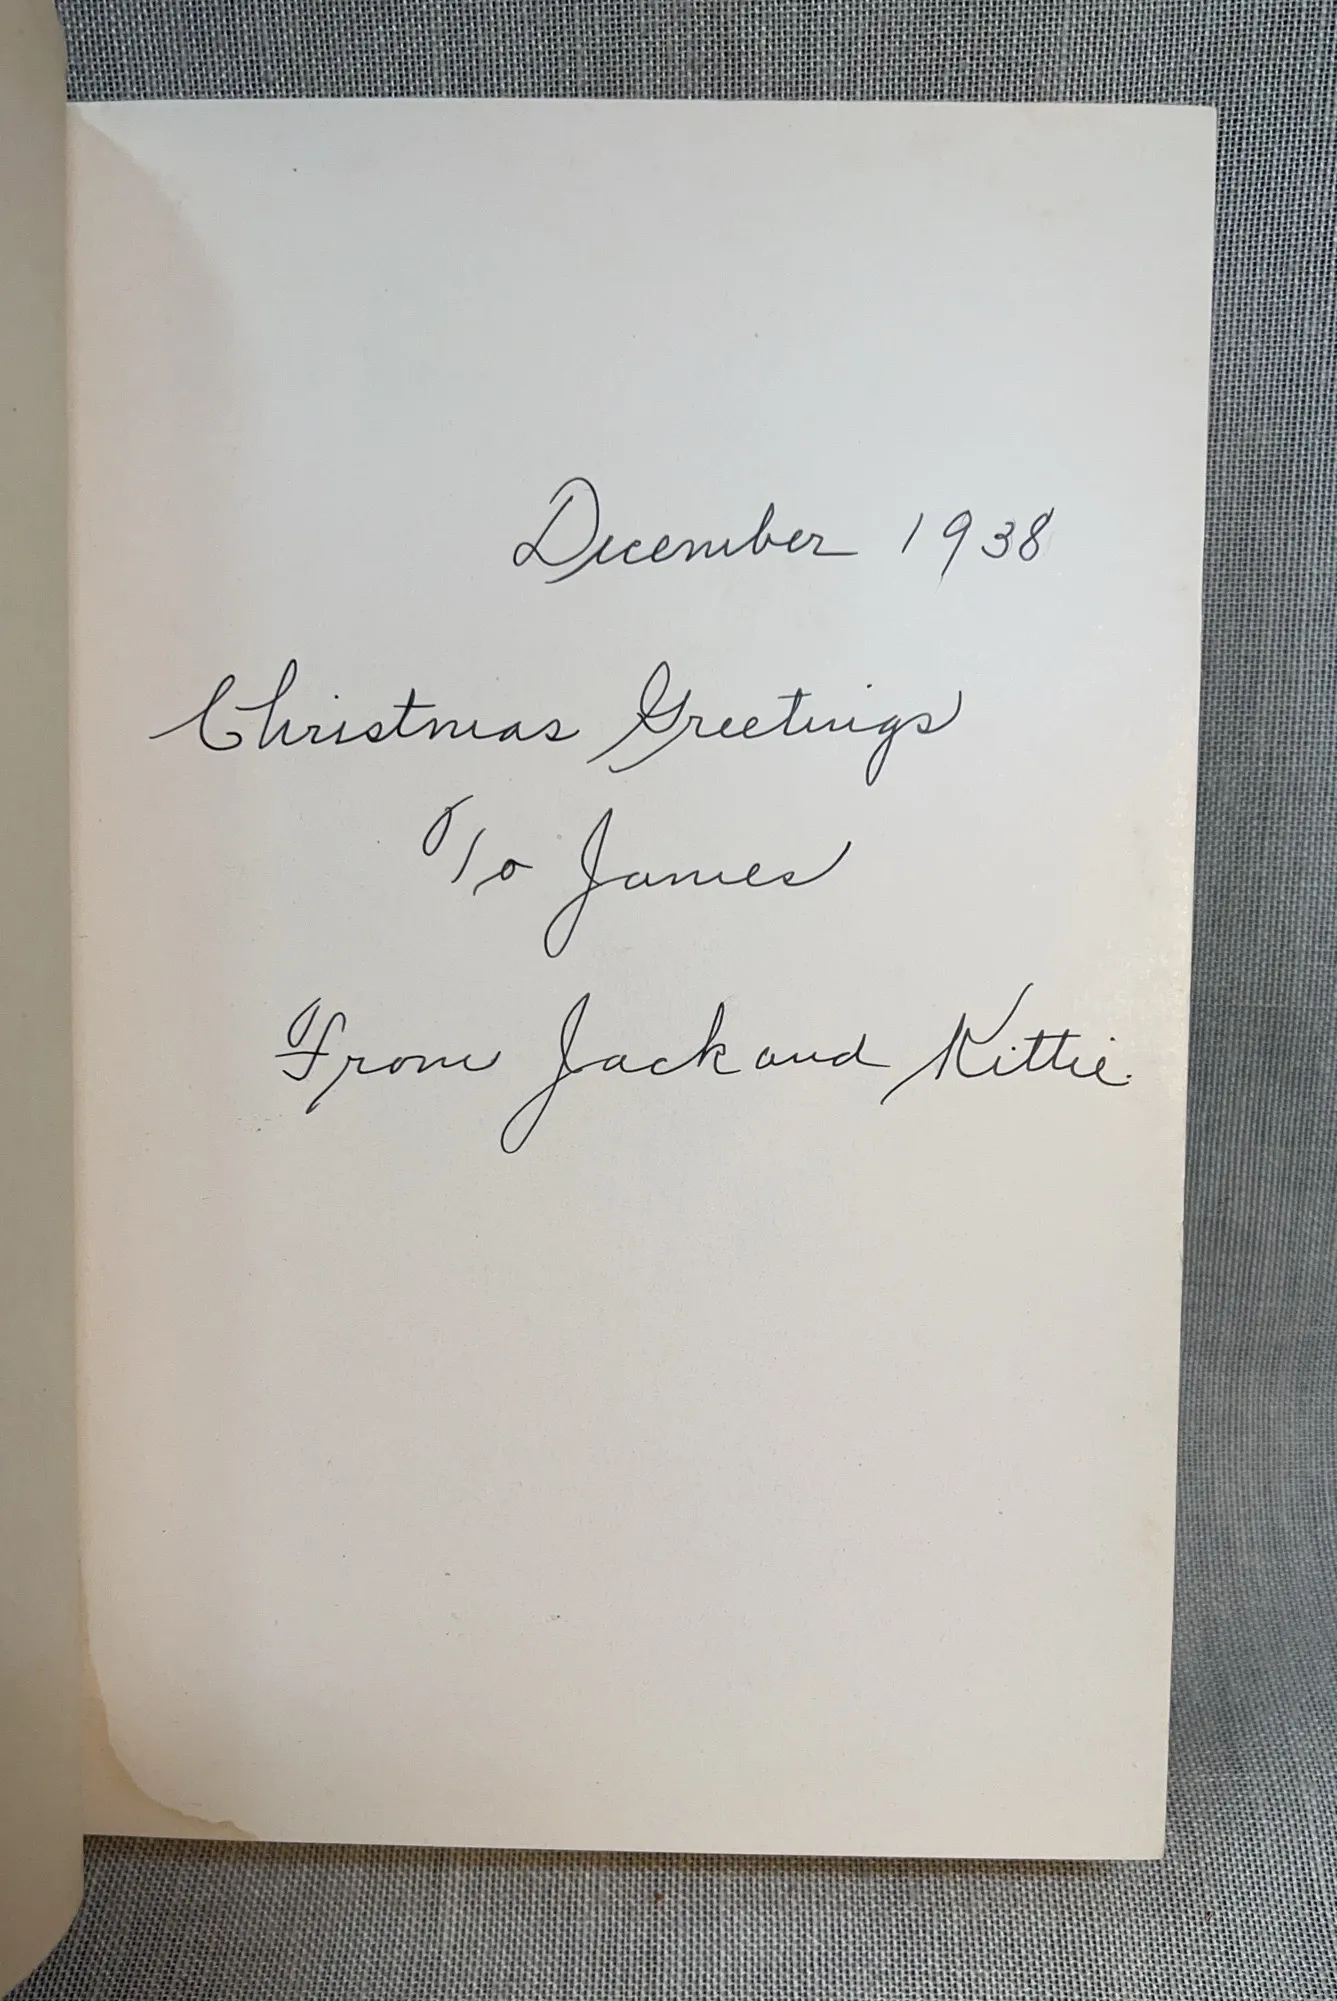 December 1938
Christmas Greetings
To James
From Jack and Kittie.